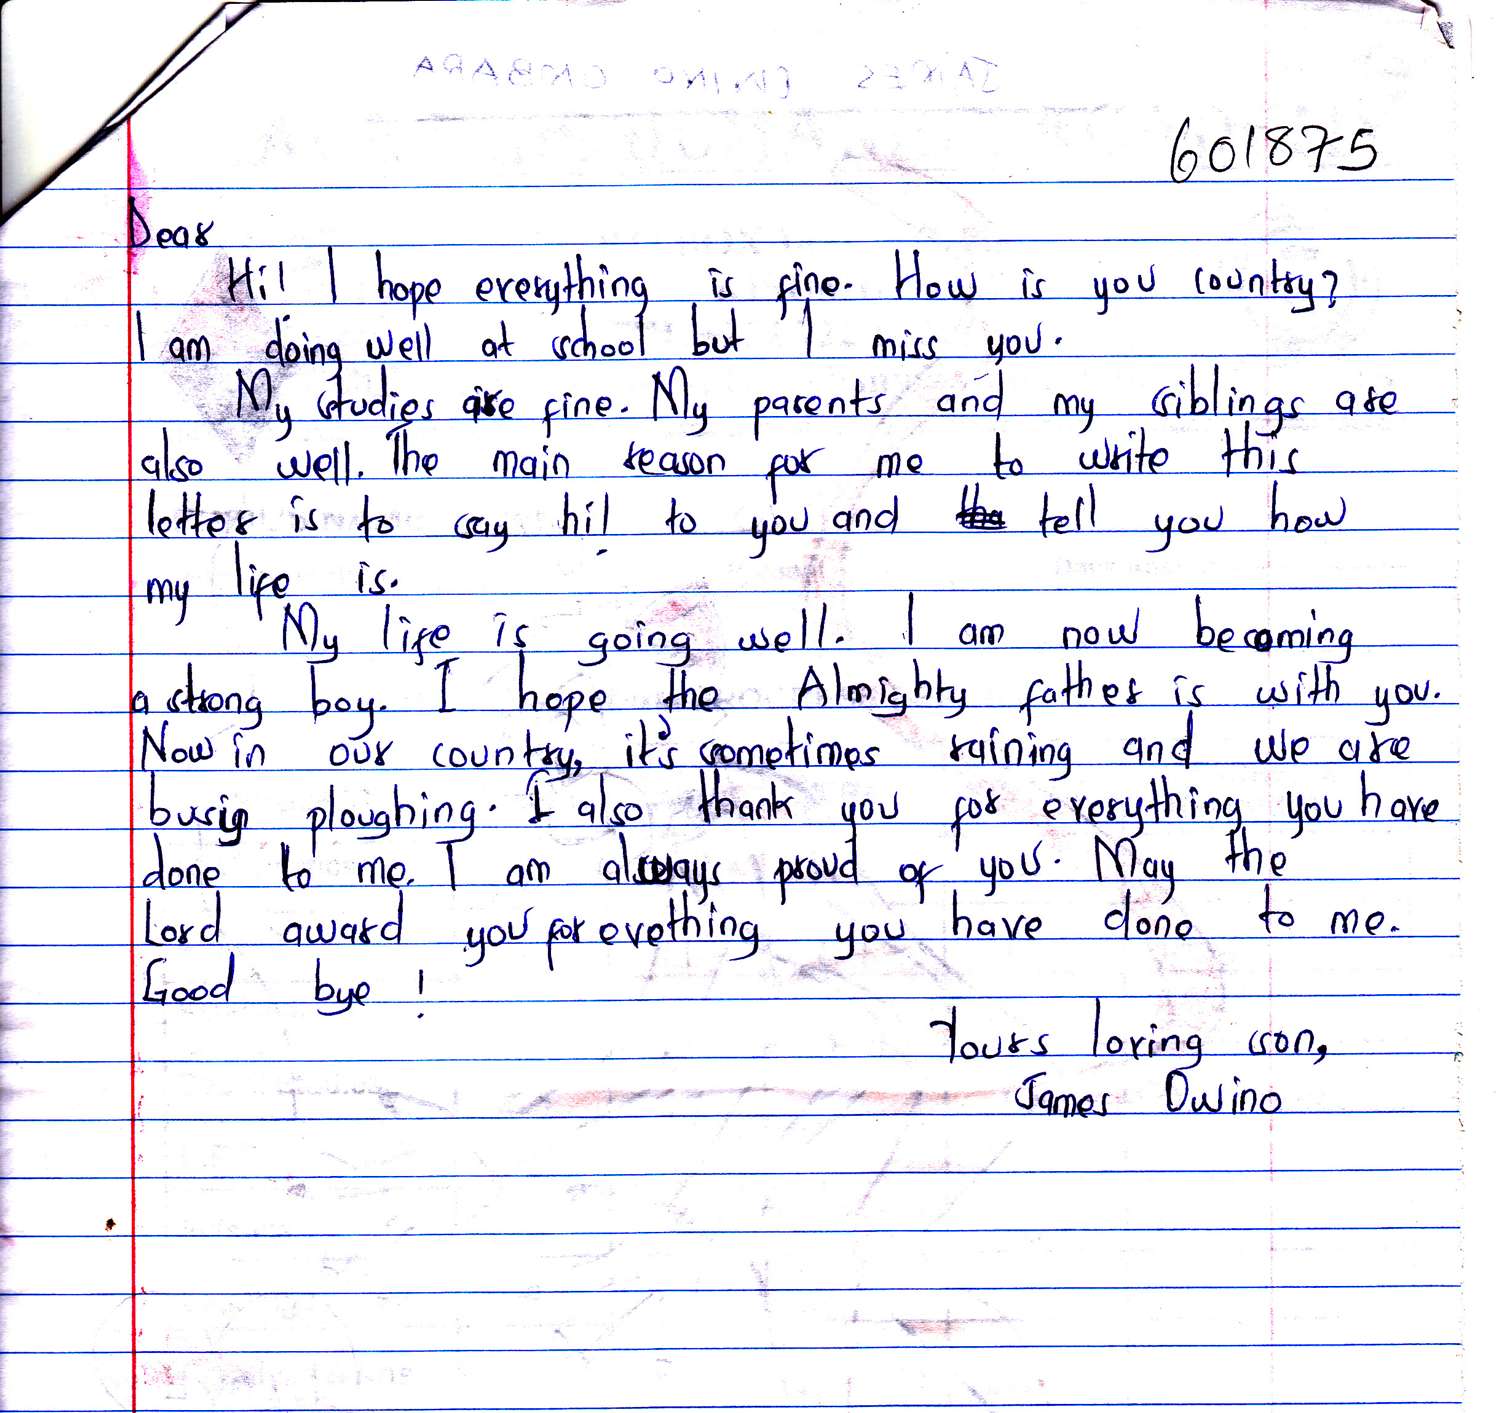 601875
Dear
Hi! I hope everything is fine. How is you country?
I am doing well at school but I miss you.
My studies are fine. My parents and my siblings are
also well. The main reason for me to write this
letter is to say hi! to you and tell you how
my life is.
My life is going well. I am now becoming
a strong boy. I hope the Almighty father is with you.
Now in our country, it's sometimes raining and we are
busy ploughing. I also thank you for everything you have
done to me. I am always proud of you. May the
Lord award you for evething you have done to me.
Good bye !
Yours loving son,
James Owino